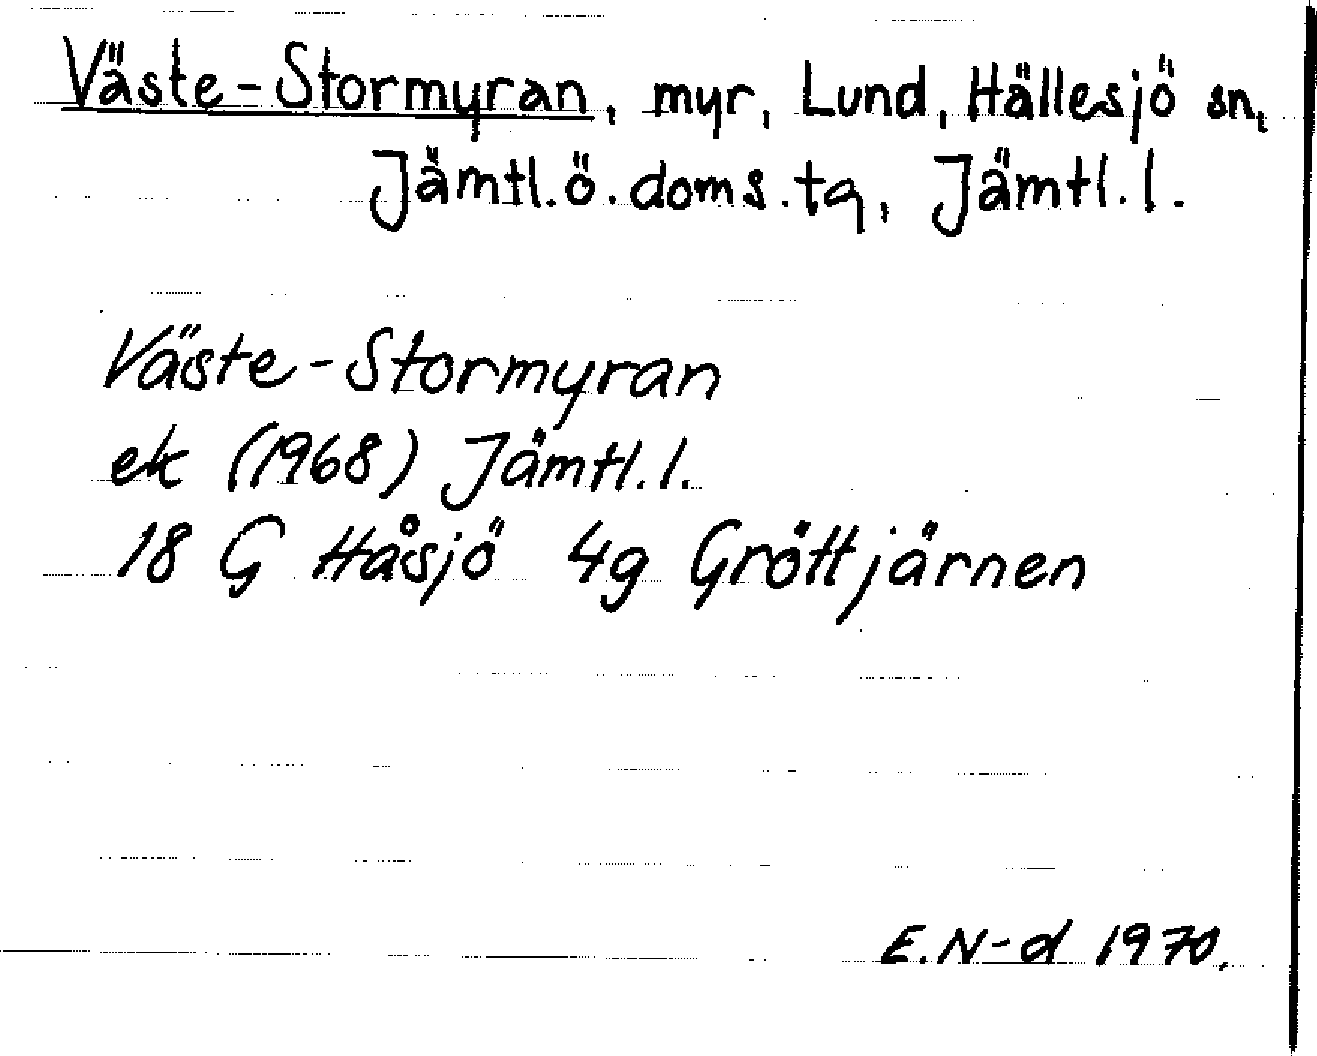 Väste-Stormyran, myr, Lund, Hällesjö sn,
Jämtl.ö.doms.tq, Jämtl.l.
Väste-Stormyran
ek (1968) Jämtl.l.
18 G Håsjö 4g Gröttjärnen
E.N-d 1970.